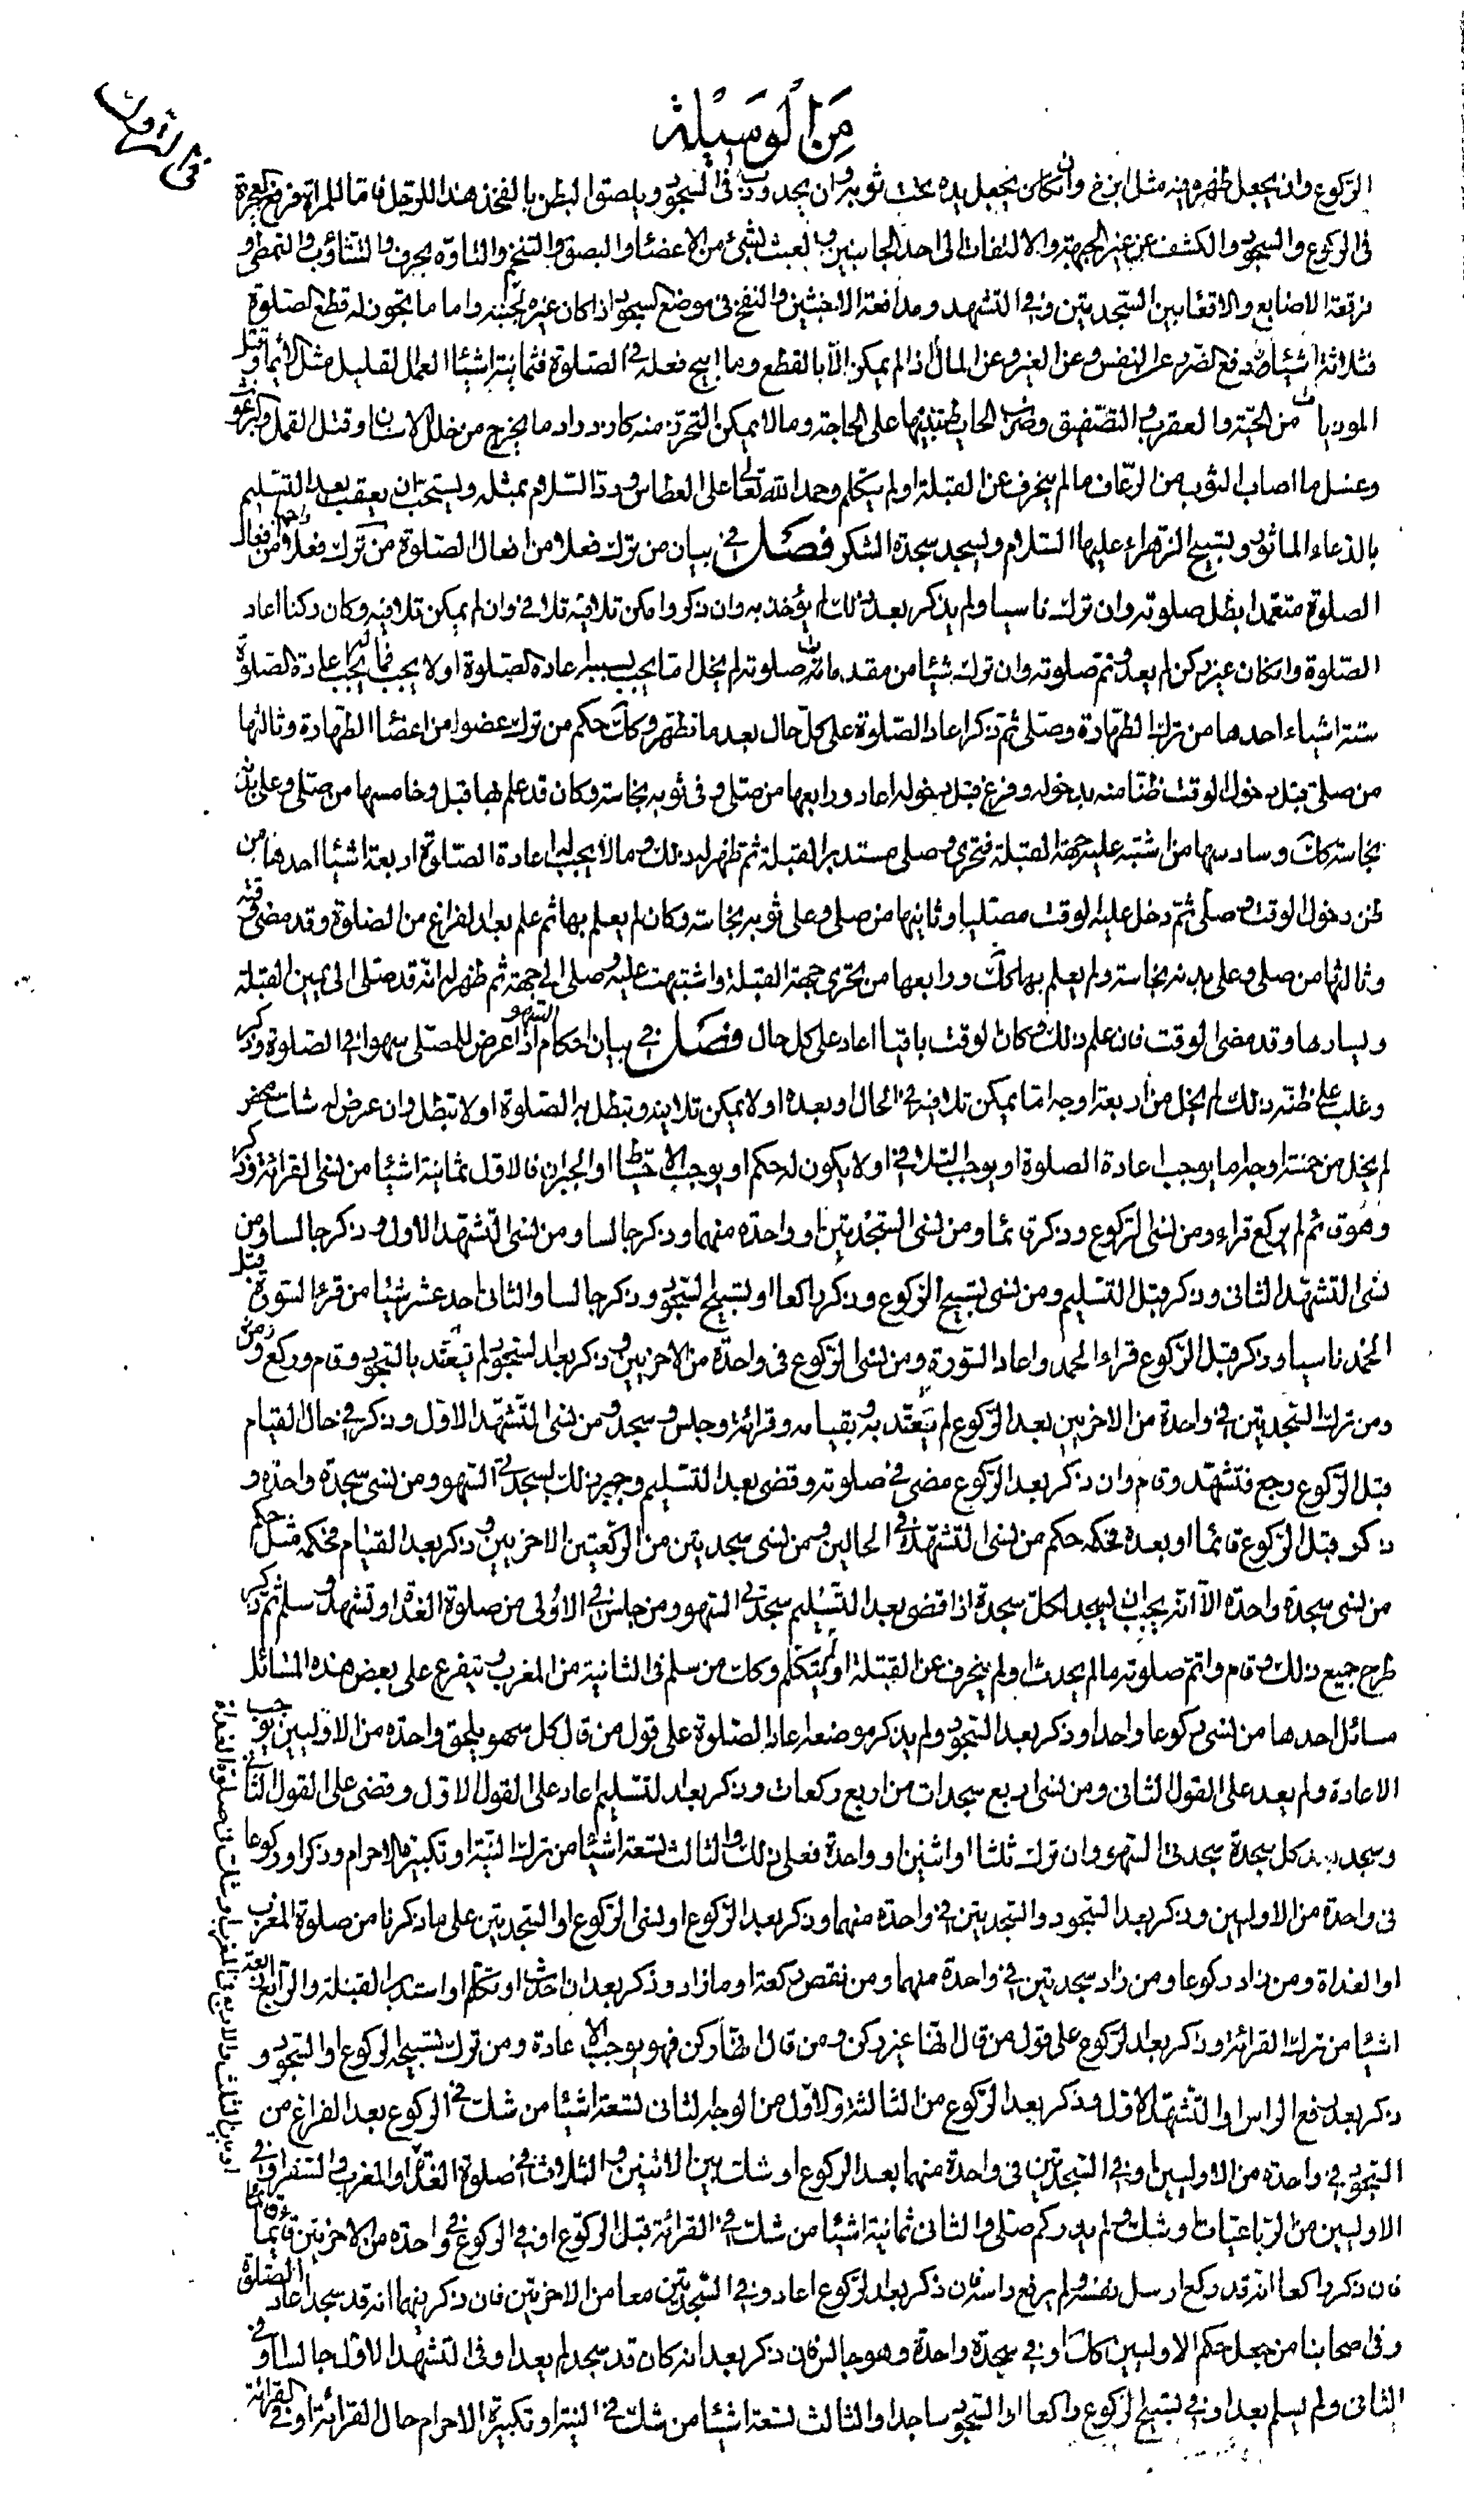 من الوسيلة
في التروك
الركوع وان يجعل ظهره فيه مثل ان كان يجعل يده تحت ثوبه وان يحدودب في السجود ويلصق البطن بالفخذ هذا للرجل فاما للمراة فرفع العجيزة
في الركوع والسجود والكشف عن غير الجبهة والالتفات الى احد الجانبين والعبث بشئ من الاعضاء والبصق والتنخم والتاوه بحرف والتثاؤب والتمطي و
فرقعة الاصابع والاقعاء بين السجدتين وفي التشهد ومدافعة الاخبثين والنفخ في موضع السجود اذا كان غيره بجنبه واما ما يجوز له قطع الصلوة
فثلاثة اشياء دفع الضرر عن النفس وعن الغير وعن المال اذا لم يمكن الا بالقطع وما ابيح فعله في الصلوة فثمانية اشياء العمل القليل مثل الايماء وقتل
الموذيات من الحية والعقرب والتصفيق وضرب الحايط تنبيها على الحاجة وما لا يمكن التحرز منه كازدراد ما يخرج من خلل الاسنان وقتل القمل والبرغوث
وغسل ما اصاب الثوب من الرعاف ما لم ينحرف عن القبلة او لم يتكلم وحمد الله تعالى على العطاس ورد السلام بمثله ويستحب ان يعقب بعد التسليم
بالدعاء الماثور وتسبيح الزهراء عليها السلام ويسجد سجدة الشكر فصل في بيان من ترك فعلا من افعال الصلوة من ترك فعلا واحدا من افعال
الصلوة متعمدا بطل صلوته وان ترك ناسيا ولم يذكر بعد ذلك لم يؤخذ به وان ذكر وامكن تلافيه تلافى وان لم يمكن تلافيه وكان ركنا اعاد
الصلوة وان كان غير ركن لم يعد وتم صلوته وان ترك شيئا من مقدمات صلوته لم يخل اما يجب بسببه اعادة الصلوة او لا يجب فما يجب له اعادة الصلوة
ستة اشياء احدها من ترك الطهارة وصلى ثم ذكر اعاد الصلوة على كل حال بعد ما تطهر وكك حكم من ترك عضوا من اعضاء الطهارة وثالثها
من صلى قبل دخول الوقت ظنا منه بدخوله وفرغ قبل دخوله اعاد ورابعها من صلى وفي ثوبه نجاسة وكان قد علم بها قبل وخامسها من صلى وعلى بدنه
نجاسة كك وسادسها من اشتبه عليه جهة القبلة فتحرى وصلى مستدبر القبلة ثم ظهر له ذلك وما لا يجب له اعادة الصلوة اربعة اشياء احدها من
ظن دخول الوقت وصلى ثم دخل عليه الوقت مصليا وثانيها من صلى وعلى ثوبه نجاسة وكان لم يعلم بها ثم علم بعد الفراغ من الصلوة وقد مضى وقته
وثالثها من صلى وعلى بدنه نجاسة ولم يعلم بها كك ورابعها من تحرى جهة القبلة واشتبهت عليه وصلى الى جهة ثم ظهر له انه قد صلى الى يمين القبلة
ويسارها وقد مضى الوقت فان علم ذلك وكان الوقت باقيا اعاد على كل حال فصل في بيان احكام السهو اذا عرض للمصلي سهو في الصلوة وذكر
وغلب على ظنه ذلك لم يخل من اربعة اوجه اما يمكن تلافيه في الحال او بعده او لا يمكن تلافيه وتبطل به الصلوة او لا تبطل وان عرض له شك محض
لم يخل من خمسة اوجه اما يوجب اعادة الصلوة او يوجب التلافي او لا يكون له حكم او يوجب الاحتياط او الجبران فالاول ثمانية اشياء من نسى القرائة وذكر
وهو قائم لم يركع قراء ومن نسى الركوع وذكر قائما ومن نسى السجدتين او واحدة منهما وذكر جالسا ومن نسى التشهد الاول وذكر جالسا ومن
نسى التشهد الثاني وذكر قبل التسليم ومن نسى تسبيح الركوع وذكر راكعا او تسبيح السجود وذكر جالسا والثاني احد عشر شيئا من قرء السورة قبل
الحمد ناسيا وذكر قبل الركوع قراء الحمد واعاد السورة ومن نسى الركوع في واحدة من الاخريين وذكر بعد السجود لم يعتد بالسجود وقام وركع
ومن ترك السجدتين في واحدة من الاخريين بعد الركوع لم يعتد به وبقيامه وقرائة وجلس وسجد ومن نسى التشهد الاول وذكر في حال القيام
قبل الركوع رجع فتشهد وقام وان ذكر بعد الركوع مضى في صلوته وقضى بعد التسليم وجبر ذلك بسجدتي السهو ومن نسى سجدة واحدة و
ذكر قبل الركوع قائما او بعده فحكمه حكم من نسى التشهد في الحالين ومن نسى سجدتين من الركعتين الاخريين وذكر بعد القيام فحكمه مثل حكم
من نسى سجدة واحدة الا انه يجب ان يسجد لكل سجدة اذا قضى بعد التسليم سجدتي السهو ومن جلس في الاولى من صلوة الغداة او تشهد وسلم ثم ذكر
طرح جميع ذلك وقام واتم صلوته ما لم يحدث او لم ينحرف عن القبلة او لم يتكلم وكك من سلم في الثانية من المغرب ويتفرع على بعض هذه المسائل
مسائل احدها من نسى ركوعا واحدا وذكر بعد السجود ولم يذكر موضعه اعاد الصلوة على قول من قال كل سهو يلحق واحدة من الاوليين يوجب
الاعادة ولم يعد على القول الثاني ومن نسى اربع سجدات من اربع ركعات وذكر بعد التسليم اعاد على القول الاول وقضى على القول الثاني
وسجد بعد كل سجدة سجدتي السهو وان ترك ثلثا او اثنين او واحدة فعل ذلك والثالث تسعة اشياء من ترك النية او تكبيرة الاحرام وذكر او ركوعا
في واحدة من الاوليين وذكر بعد السجود والسجدتين في واحدة منهما وذكر بعد الركوع او نسى الركوع او السجدتين على ما ذكرنا من صلوة المغرب
او الغداة ومن زاد ركوعا ومن زاد سجدتين في واحدة منهما ومن نقص ركعة او ما زاد وذكر بعد ان احدث او تكلم او استدبر القبلة والرابع اربعة
اشياء من ترك القرائة وذكر بعد الركوع على قول من قال انها غير ركن ومن قال انها ركن فهو يوجب الاعادة ومن ترك تسبيح الركوع او السجود و
ذكر بعد رفع الراس او التشهد الاول وذكر بعد الركوع من الثالثة والاول من الوجه الثاني تسعة اشياء من شك في الركوع بعد الفراغ من
السجود في واحدة من الاوليين او في السجدتين في واحدة منهما بعد الركوع او شك بين الاثنين والثلاث في صلوة الغداة او المغرب والسفر او في
الاوليين من الرباعيات او شك ولم يدر كم صلى والثاني ثمانية اشياء من شك في القرائة قبل الركوع او في الركوع في واحدة من الاخريين قائما
فان ذكر راكعا انه قد ركع ارسل نفسه ولم يرفع راسه فان ذكر بعد الركوع اعاد وفي السجدتين معا من الاخريين فان ذكر فيهما انه قد سجد اعاد الصلوة
وفي اصحابنا من جعل حكم الاوليين كك او في سجدة واحدة وهو جالس فان ذكر بعد انه كان قد سجد لم يعد او في التشهد الاول جالسا او في
الثاني ولم يسلم بعد او في تسبيح الركوع راكعا او السجود ساجدا والثالث تسعة اشياء من شك في النية او تكبيرة الاحرام حال القرائة او في القرائة